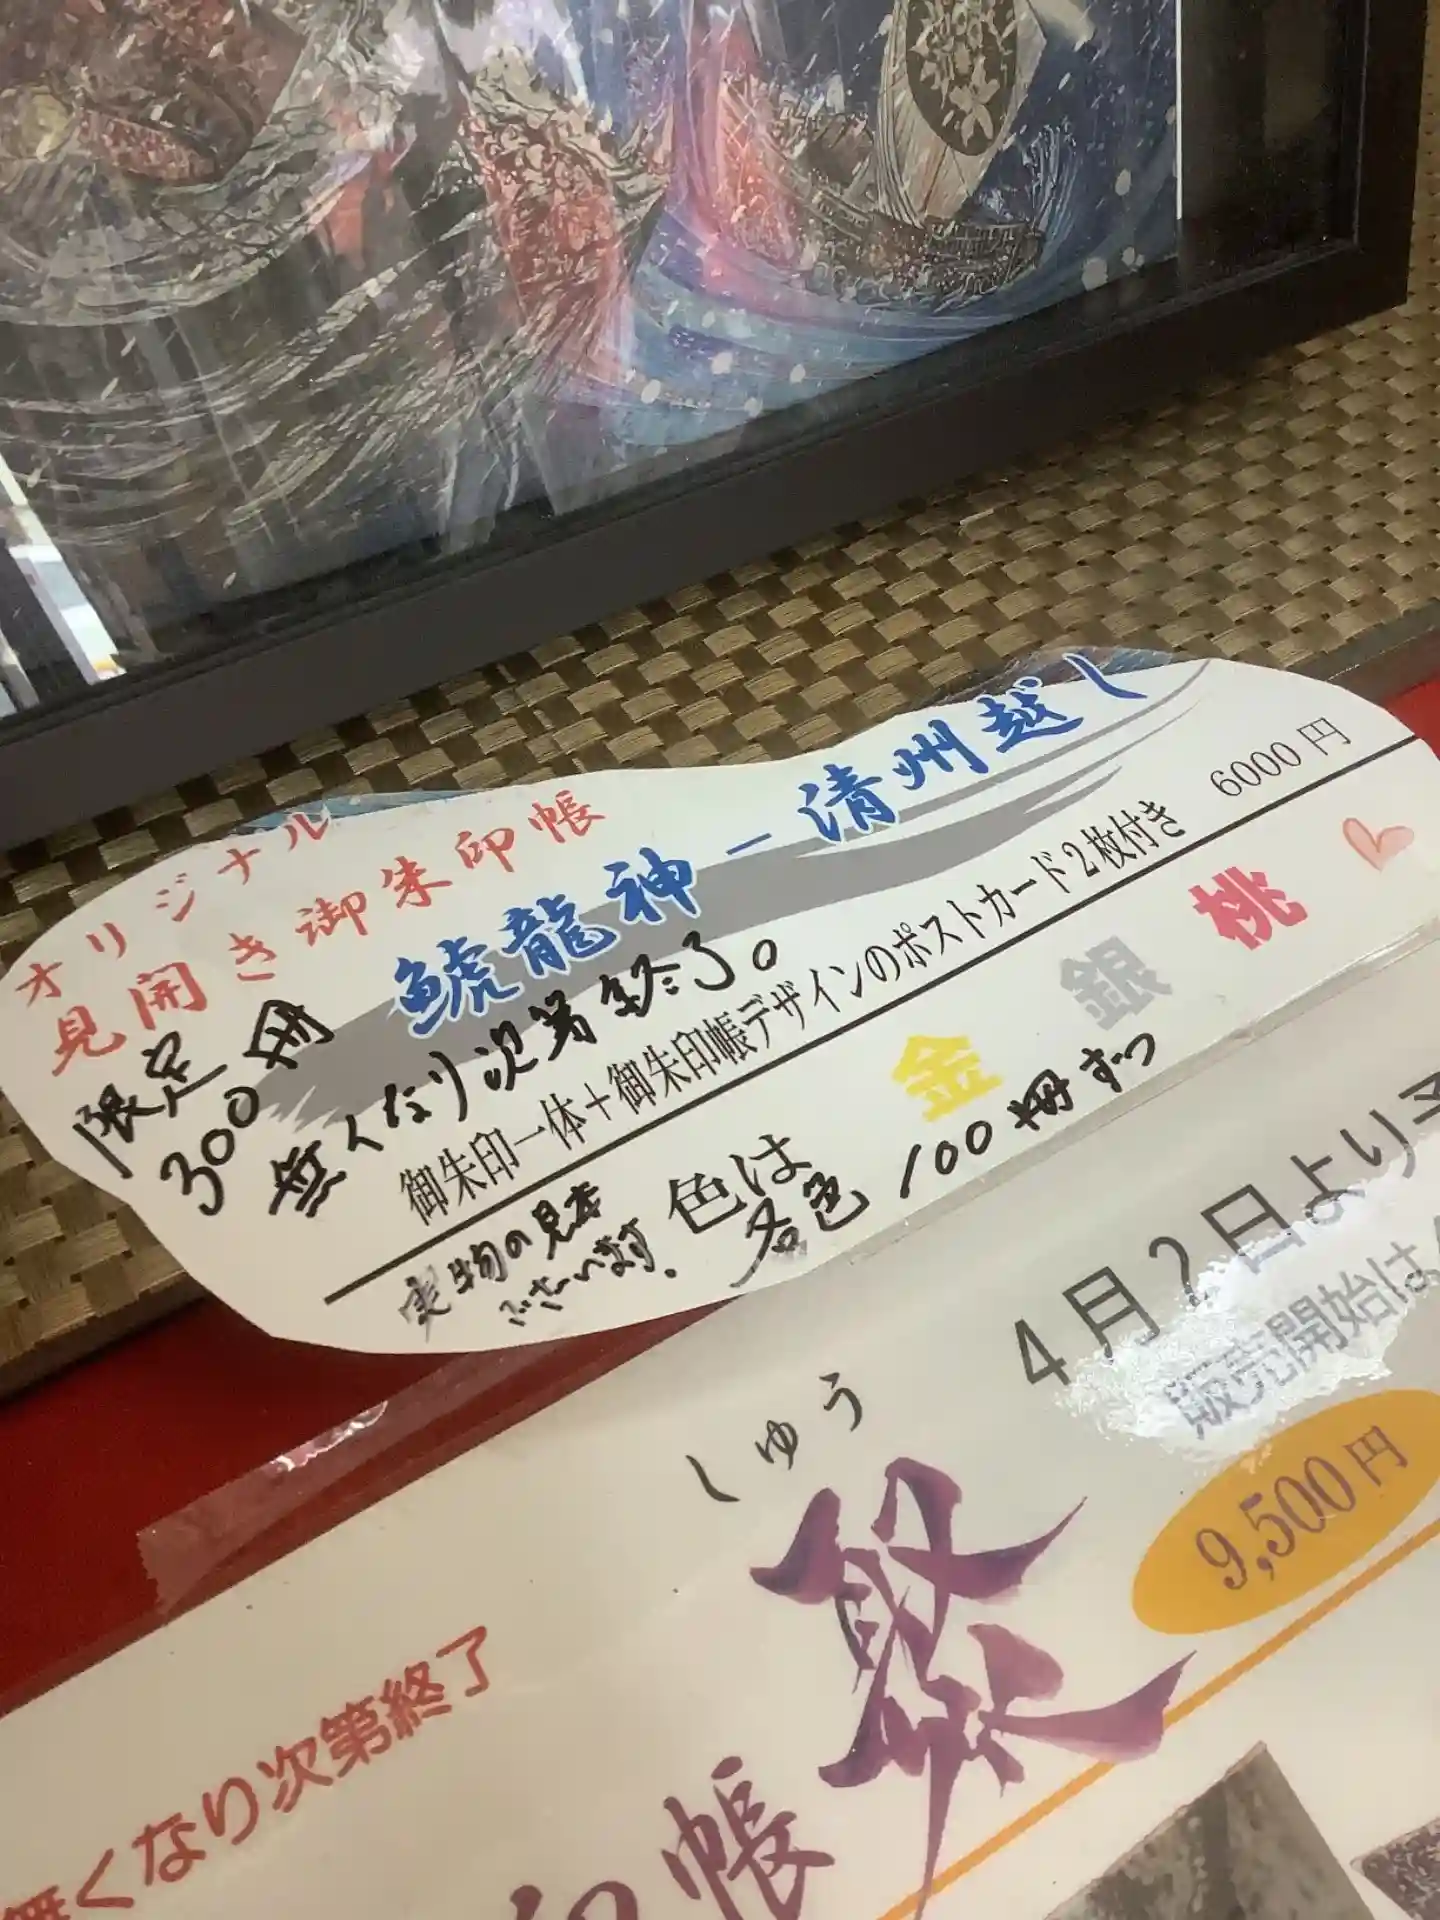 オリジナル
見開き御朱印帳
鯱龍神－清州越し
限定
300冊
無くなり次第終了。
御朱印一体＋御朱印帳デザインのポストカード2枚付き 6000円
実物の見本
ございます。
色は 金 銀 桃
各色 100冊ずつ
4月2日より
販売開始は
9,500円
しゅう
聚
無くなり次第終了
印帳